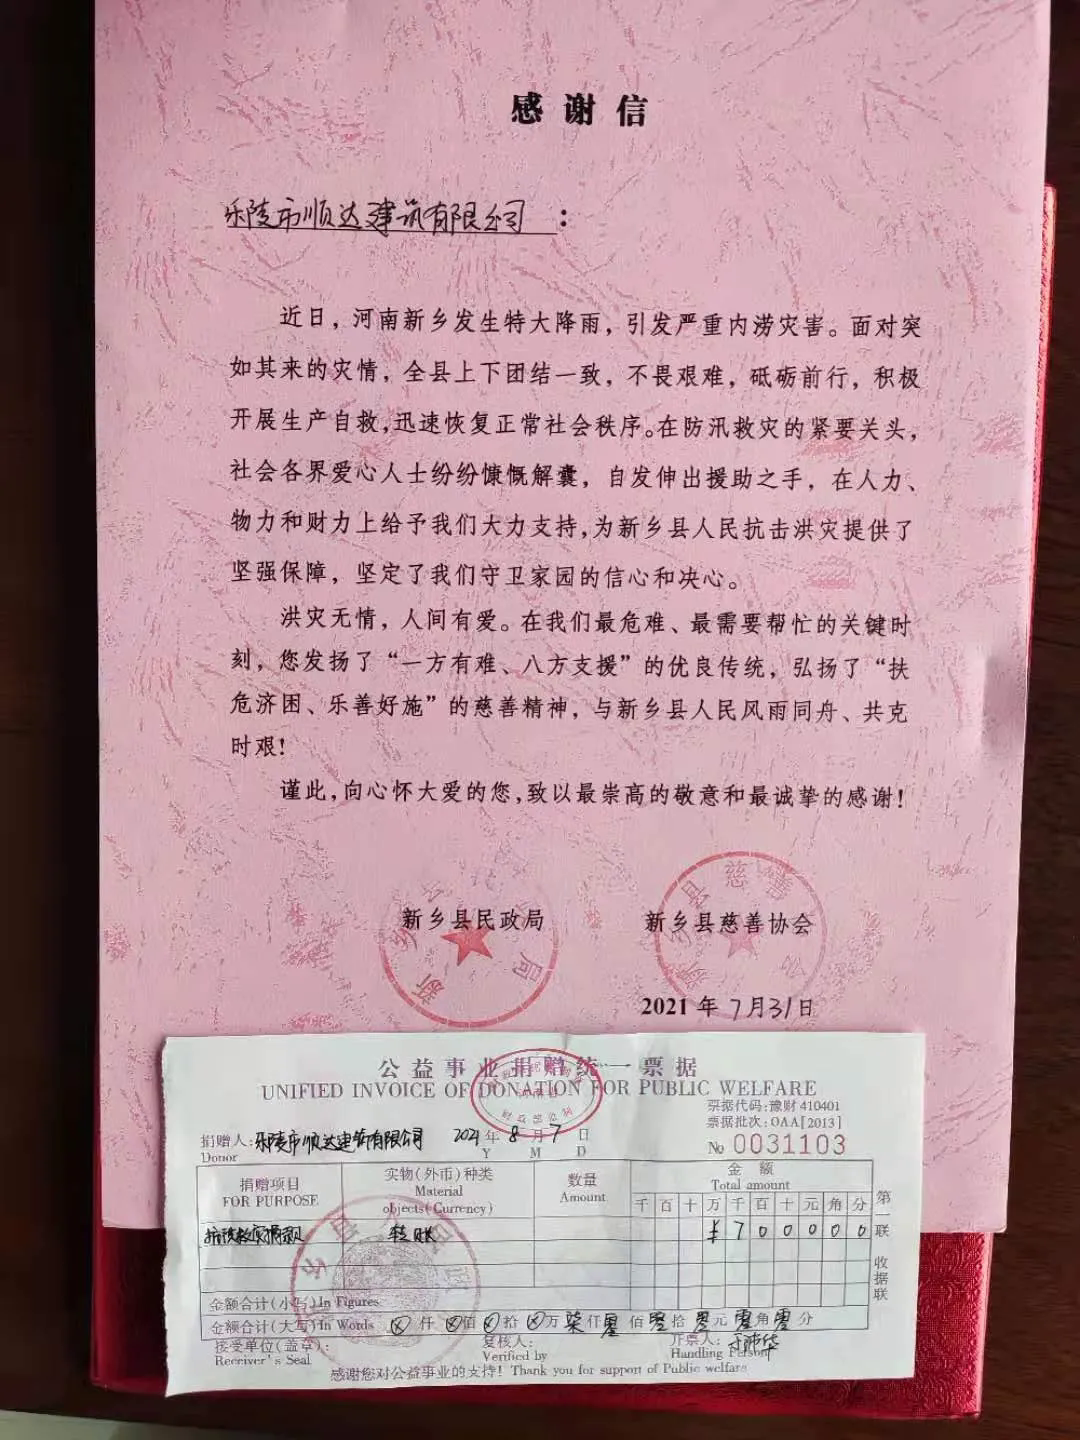 感谢信
乐陵市顺达建筑有限公司：
近日，河南新乡发生特大降雨，引发严重内涝灾害。面对突
如其来的灾情，全县上下团结一致，不畏艰难，砥砺前行，积极
开展生产自救，迅速恢复正常社会秩序。在防汛救灾的紧要关头，
社会各界爱心人士纷纷慷慨解囊，自发伸出援助之手，在人力、
物力和财力上给予我们大力支持，为新乡县人民抗击洪灾提供了
坚强保障，坚定了我们守卫家园的信心和决心。
洪灾无情，人间有爱。在我们最危难、最需要帮忙的关键时
刻，您发扬了“一方有难、八方支援”的优良传统，弘扬了“扶
危济困、乐善好施”的慈善精神，与新乡县人民风雨同舟、共克
时艰！
谨此，向心怀大爱的您，致以最崇高的敬意和最诚挚的感谢！
新乡县民政局 新乡县慈善协会
2021年7月31日
公益事业捐赠统一票据
UNIFIED INVOICE OF DONATION FOR PUBLIC WELFARE
票据代码：豫财 410401
票据批次：OAA[2013]
捐赠人：乐陵市顺达建筑有限公司 2021年8月7日 № 0031103
Donor Y M D
捐赠项目 实物（外币）种类 数量 金额
FOR PURPOSE Material objects(Currency) Amount Total amount
千 百 十 万 千 百 十 元 角 分
抗洪救灾捐款 转账 ¥ 7 0 0 0 0 0
第一联 收据联
金额合计（小写）In Figures
金额合计（大写）In Words ⊗仟⊗佰⊗拾⊗万柒仟零佰零拾零元零角零分
接受单位（盖章）： 复核人： 开票人：
Receiver's Seal Verified by Handling Person
感谢您对公益事业的支持！Thank you for support of Public welfare